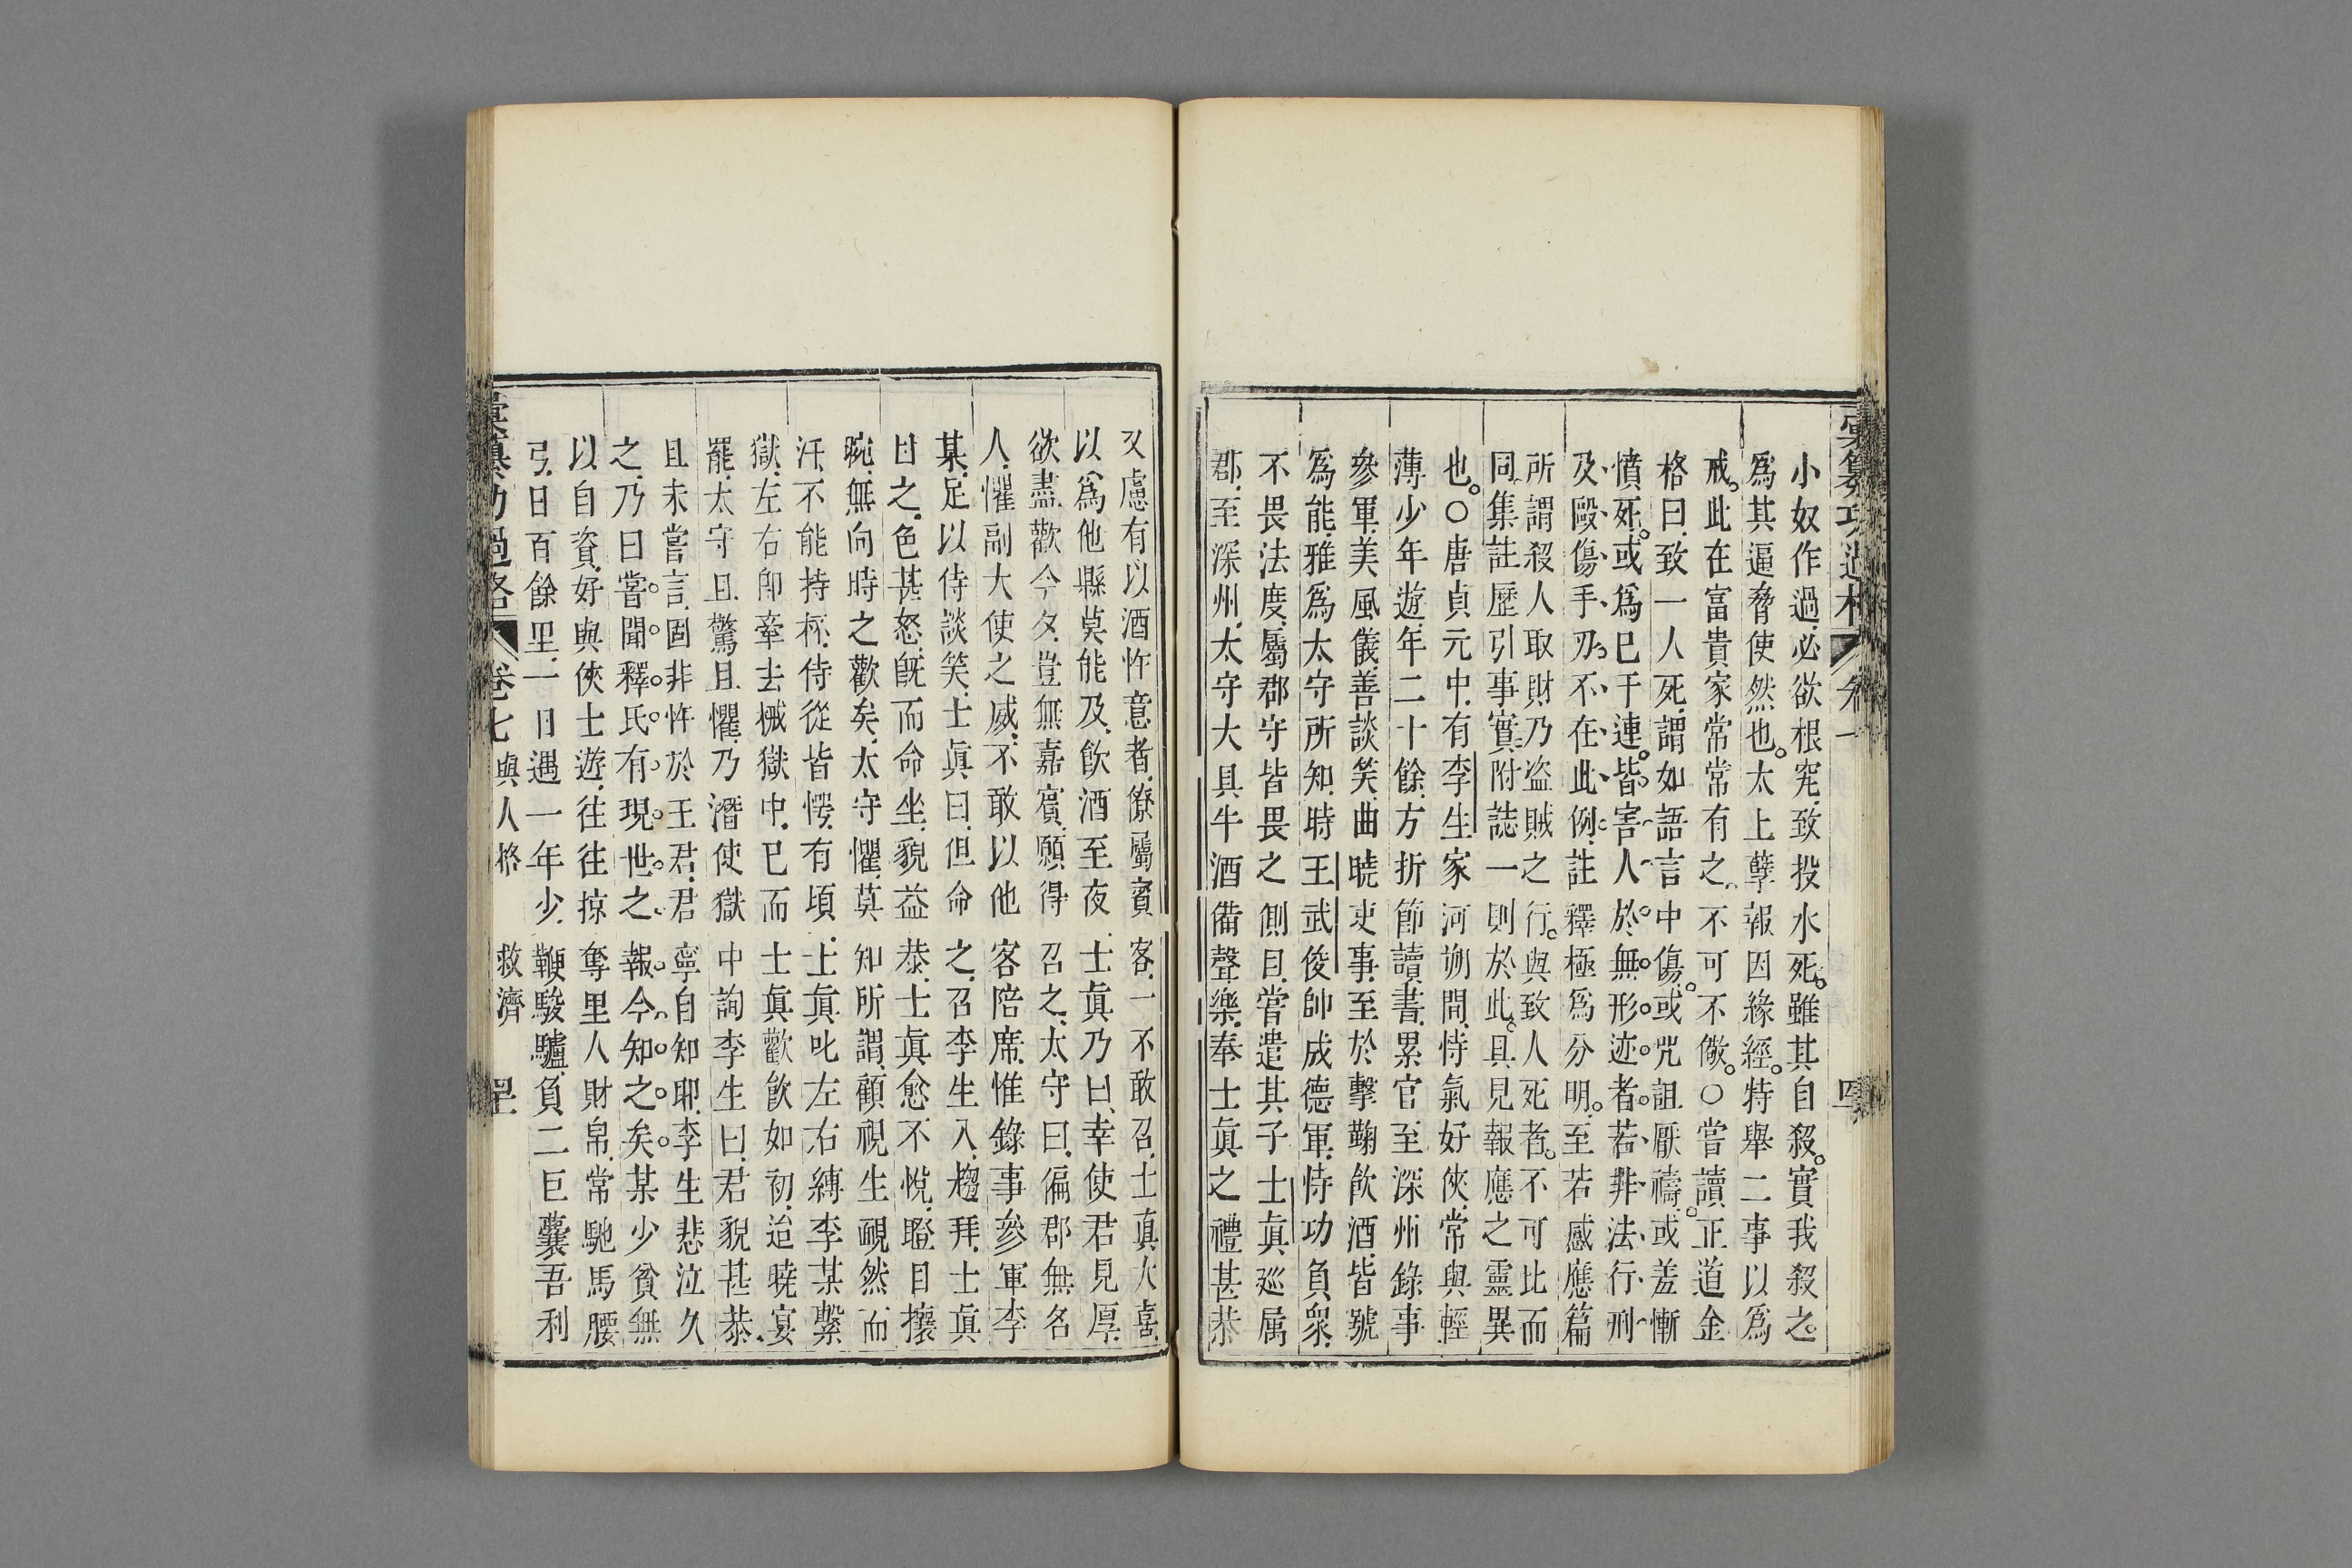 小奴作過必欲根究致投水死雖其自殺實我殺之
爲其逼脅使然也太上孽報因緣經特舉二事以爲
戒此在富貴家常常有之不可不儆○嘗讀正道金
格曰致一人死謂如語言中傷或咒詛厭禱或羞慚
憤死或爲已干連皆害人於無形迹者若非法行刑
及毆傷手刃不在此例註釋極爲分明至若感應篇
所謂殺人取財乃盗賊之行與致人死者不可比而
同集註歷引事實附誌一則於此具見報應之靈異
也○唐貞元中有李生家河朔間恃氣好俠常與輕
薄少年遊年二十餘方折節讀書累官至深州錄事
參軍美風儀善談笑曲曉吏事至於擊鞠飲酒皆號
爲能雅爲太守所知時王武俊帥成德軍恃功負衆
不畏法度屬郡守皆畏之側目嘗遣其子士眞巡属
郡至深州太守大具牛酒備聲樂奉士眞之禮甚恭
又慮有以酒忤意者僚屬賓客一不敢召士眞大喜
以爲他縣莫能及飲酒至夜士眞乃曰幸使君見厚
欲盡歡今夕豈無嘉賓願得召之太守曰偏郡無名
人懼副大使之威不敢以他客陪席惟錄事參軍李
某足以侍談笑士眞曰但命之召李生入趨拜士眞
目之色甚怒旣而命坐貌益恭士眞愈不悅瞪目攘
腕無向時之歡矣太守懼莫知所謂顧視生靦然而
汗不能持杯侍從皆愕有頃士眞叱左右縛李某繫
獄左右卽牽去械獄中已而士眞歡飲如初迨曉宴
罷太守且驚且懼乃潛使獄中詢李生曰君貌甚恭
且未嘗言固非忤於王君君寧自知耶李生悲泣久
之乃曰嘗聞釋氏有現世之報今知之矣某少貧無
以自資好與俠士遊往往掠奪里人財帛常馳馬腰
弓日百餘里一日遇一年少鞭駿驢負二巨囊吾利
彙纂功過格 卷七 與人格 救濟